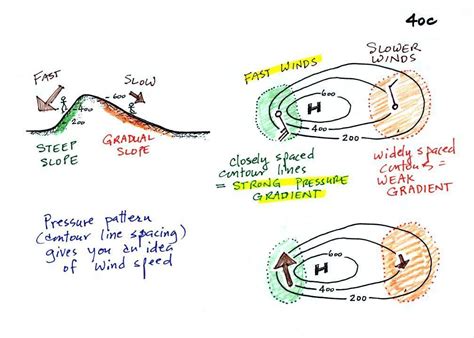 40c
FAST
SLOW
600
400
200
STEEP
SLOPE
GRADUAL
SLOPE
FAST WINDS
SLOWER
WINDS
H
600
400
200
closely spaced
contour lines
= STRONG PRESSURE
GRADIENT
widely spaced
contours =
WEAK
GRADIENT
Pressure pattern
(contour line spacing)
gives you an idea
of wind speed
H
600
400
200